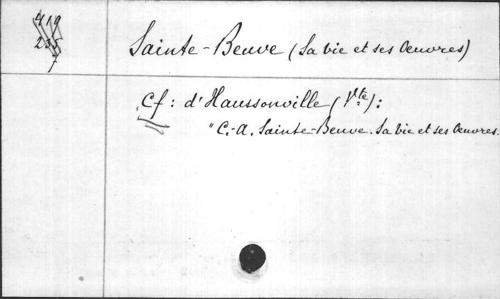 Sainte-Beuve (Sa vie et ses Oeuvres)
Cf: d'Haussonville (Vte):
"C.-A. Sainte-Beuve. Sa vie et ses Oeuvres.